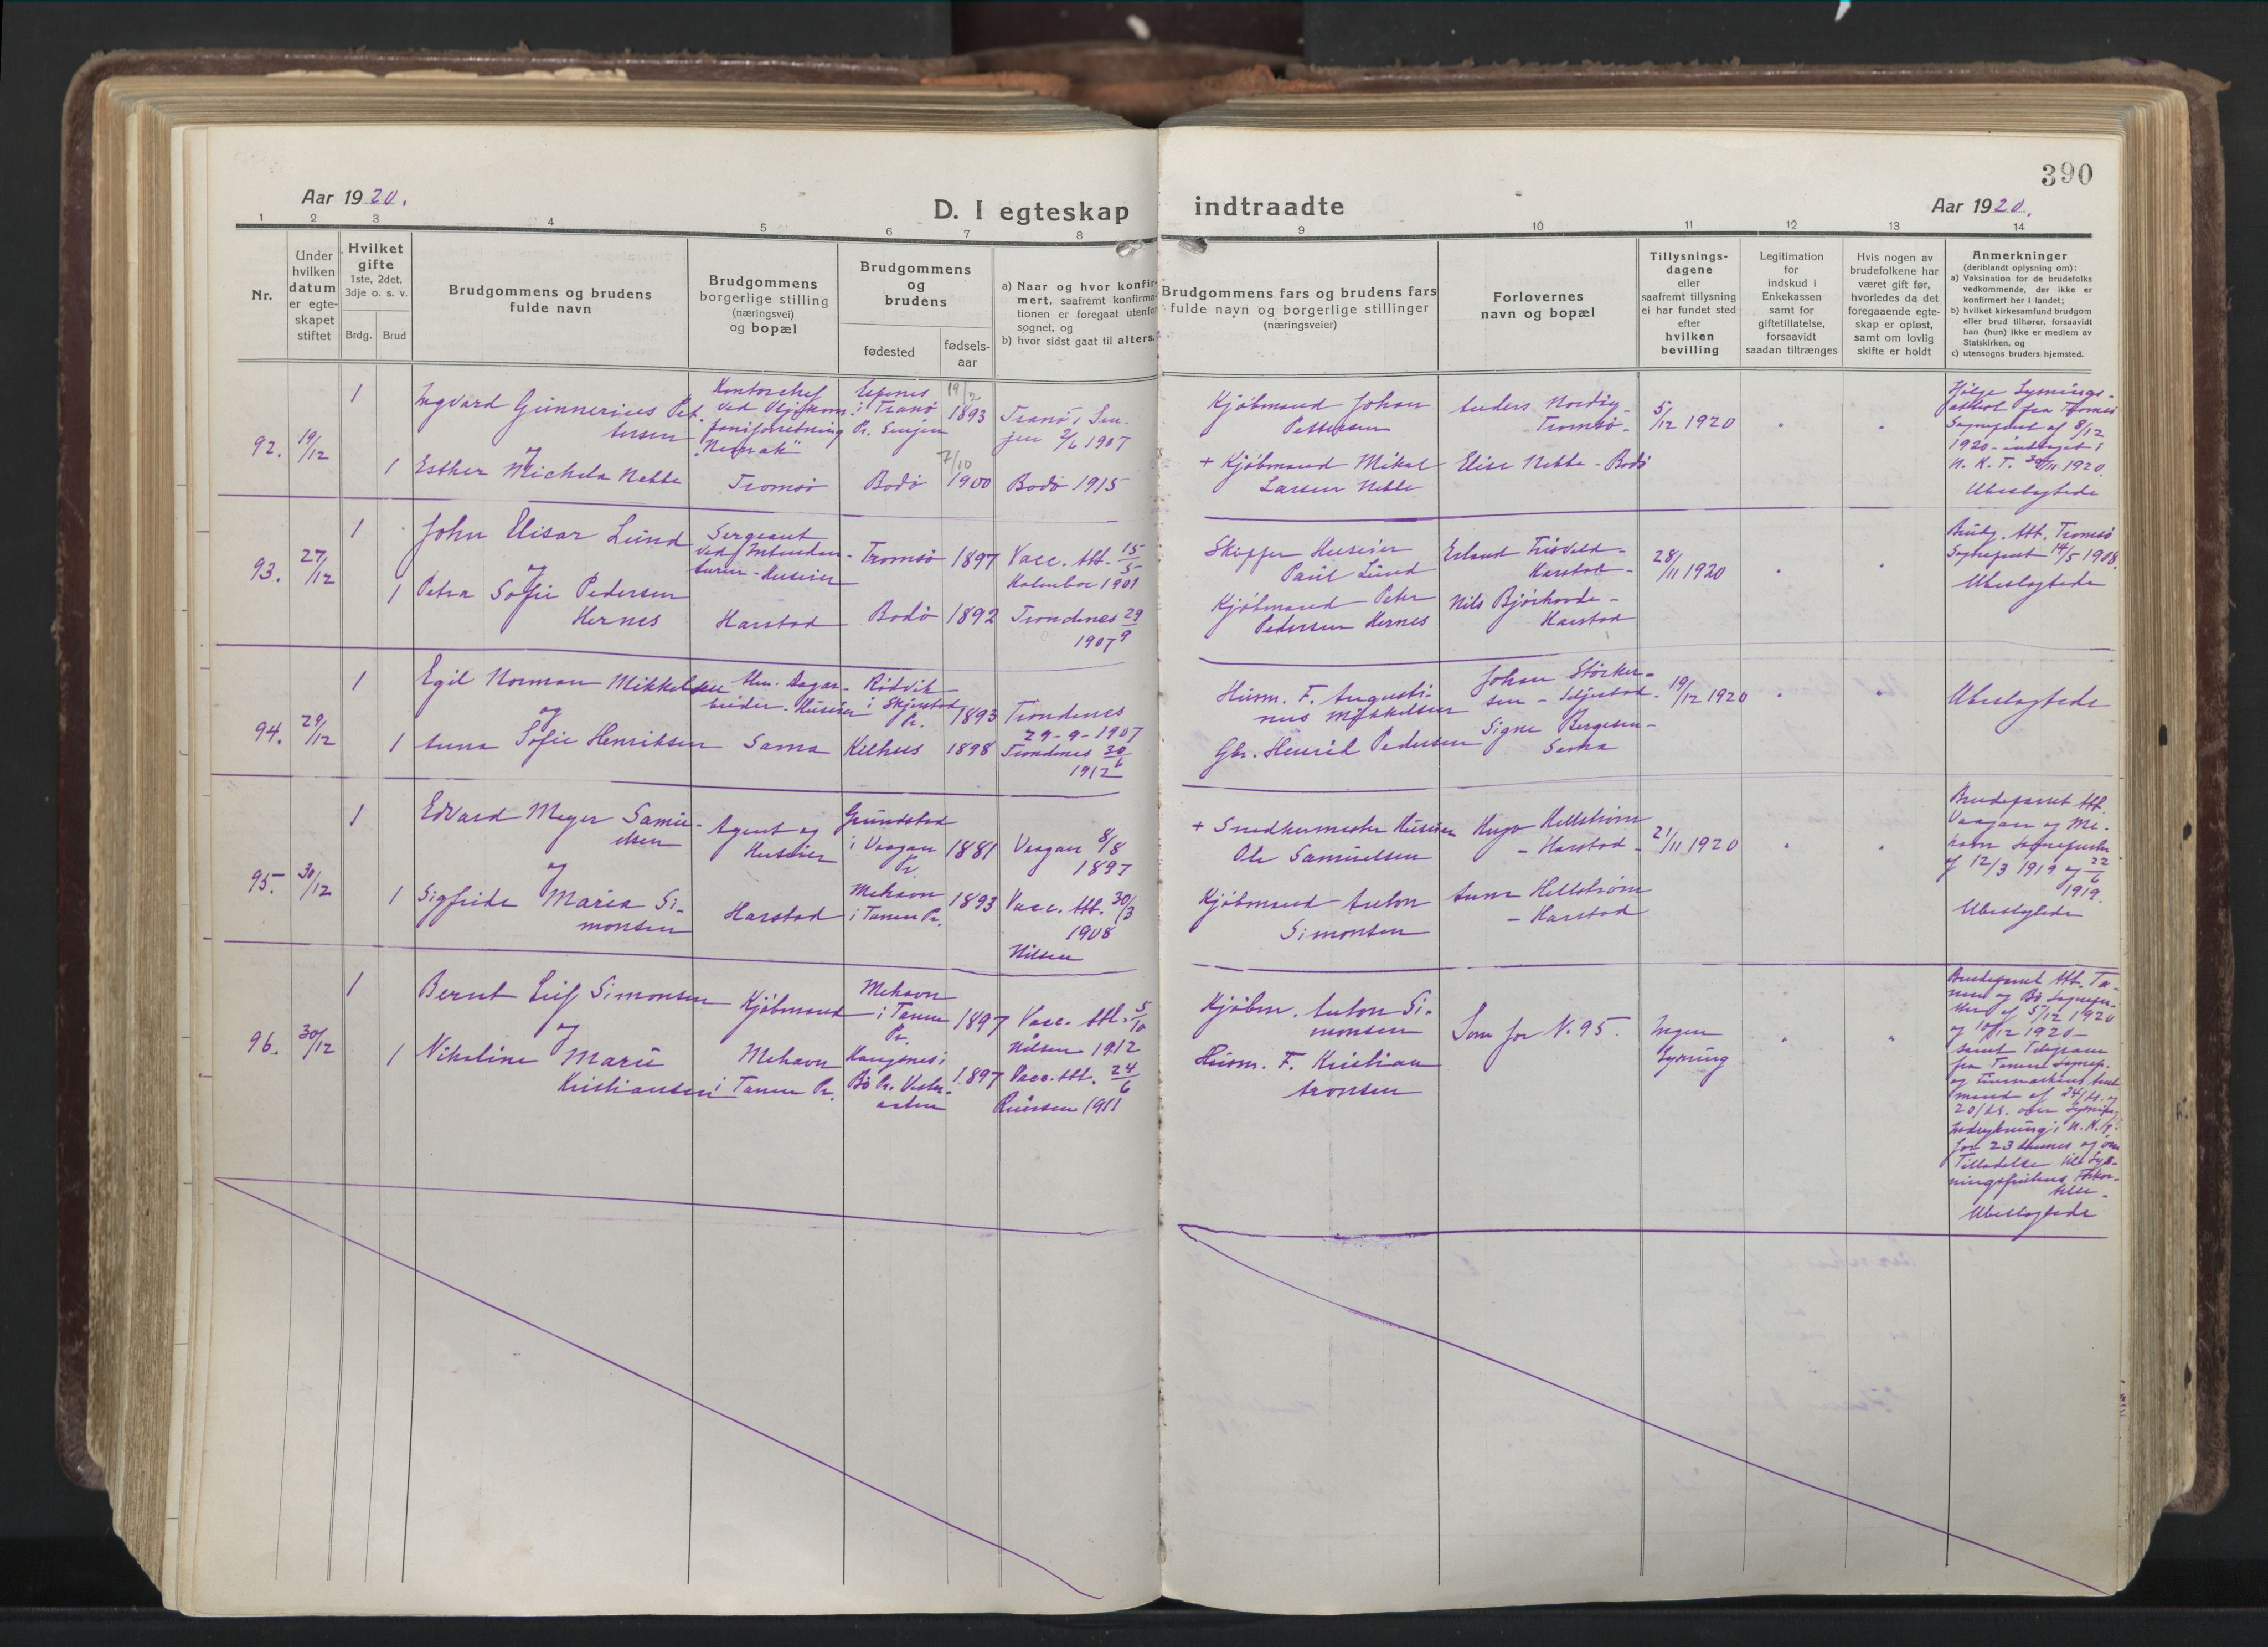 390
Aar 1920.
D. I egteskap indtraadte
Aar 1920.
1 2 3 4 5 6 7 8 9 10 11 12 13 14
Nr.
Under
hvilken
datum
er egte-
skapet
stiftet
Hvilket
gifte
1ste, 2det,
3dje o. s. v.
Brdg. Brud
Brudgommens og brudens
fulde navn
Brudgommens
borgerlige stilling
(næringsvei)
og bopæl
Brudgommens
og
brudens
fødested
fødsels-
aar
a) Naar og hvor konfir-
mert, saafremt konfirma-
tionen er foregaat utenfor
sognet, og
b) hvor sidst gaat til alters.
Brudgommens fars og brudens fars
fulde navn og borgerlige stillinger
(næringsveier)
Forlovernes
navn og bopæl
Tillysnings-
dagene
eller
saafremt tillysning
ei har fundet sted
efter
hvilken
bevilling
Legitimation
for
indskud i
Enkekassen
samt for
giftetillatelse,
forsaavidt
saadan tiltrænges
Hvis nogen av
brudefolkene har
været gift før,
hvorledes da det
foregaaende egte-
skap er opløst,
samt om lovlig
skifte er holdt
Anmerkninger
(deriblandt oplysning om):
a) Vaksination for de brudefolks
vedkommende, der ikke er
konfirmert her i landet;
b) hvilket kirkesamfund brudgom
eller brud tilhører, forsaavidt
han (hun) ikke er medlem av
Statskirken, og
c) utensogns bruders hjemsted.
92.
19/12
1
1
Ingvard Gunnerius Pet-
tersen
og
Esther Michela Nebbe
Kontorchef
ved
Tromsø
i Tranø
Pr. Senjen
Bodø
19/2
1893
7/10
1900
Tranø i Sen-
jen 2/6 1907
Bodø 1915
Kjøbmand Johan
Pettersen
+ Kjøbmand Mikal
Larsen Nebbe
Anders Nordby -
Tromsø -
Elise Nebbe - Bodø
5/12 1920
Ifølge Lysnings-
attest fra Tromsø
Sogneprest af 8/12
1920 - indtaget i
N. K. T. 30/11 1920.
Ubeslægtede
93.
27/12
1
1
John Elisar Lund
og
Petra Sofie Pedersen
Hernes
Sergeant
ved Intendan-
turen -
Harstad
Tromsø
Bodø
1897
1892
Vacc. Att. 15/5
Holmboe 1901
Trondenes 29/9
1907
Skipper
Paul Lund
Kjøbmand Peter
Pedersen Hernes
Erland
Harstad -
Nils
Harstad
28/11 1920
Brudg. Att. Tromsø
Sogneprest 14/5 1908.
Ubeslægtede
94.
29/12
1
1
Egil Norman Mikkelsen
og
Anna Sofie Henriksen
Alm. Dagar-
beider.
Sama
Rødvik
i Skjerstad
Pr.
Kilhus
1893
1898
Trondenes
29-9-1907
Trondenes 30/6
1912
Husm. F. Augusti-
nus Mikkelsen
Gbr. Henrik Pedersen
Johan Størker-
sen -
Signe Bergesen -
Sama
19/12 1920
Ubeslægtede
95.
30/12
1
1
Edvard Meyer Samu-
elsen
og
Sigfride Maria Si-
monsen
Agent og
Harstad
Grundstad
i Vaagan
Pr.
Mehavn
i Tanen Pr.
1881
1893
Vaagan 8/8
1897
Vacc. Att. 30/3
1908
Nilsen
+ Snedkermester
Ole Samuelsen
Kjøbmand Anton
Simonsen
Hugo Hellstrøm
- Harstad -
Anna Hellstrøm
- Harstad
21/11 1920
Brudeparret Att.
Vaagan og Me-
havn Sogneprester
af 12/3 1919 og 22/6
1919.
Ubeslægtede
96.
30/12
1
1
Bernt Leif Simonsen
og
Nikoline Marie
Kristiansen
Kjøbmand
Mehavn
i Tanen Pr.
Mehavn
i Tanen
Pr.
Bø Pr. Vester-
aalen
1897
1897
Vacc. Att. 5/10
Nilsen 1912
Vacc. Att. 24/6
1911
Kjøbm. Anton Si-
monsen
Husm. F. Kristian
Aronsen
Som for N. 95.
Ingen
Lysning
Brudeparret Att. Ta-
nen og Bø Sognepre-
ster af 5/12 1920
og 10/12 1920 -
samt Telegram
fra Tanen Sognepr.
og Finmarkens Amt-
mand af 24/ds. og
20/ds. over Lysning
Indrykning i N. K. T.
for 23 dennes og om
Tilladelse til Lys-
ningsfristens Forkor-
telse.
Ubeslægtede